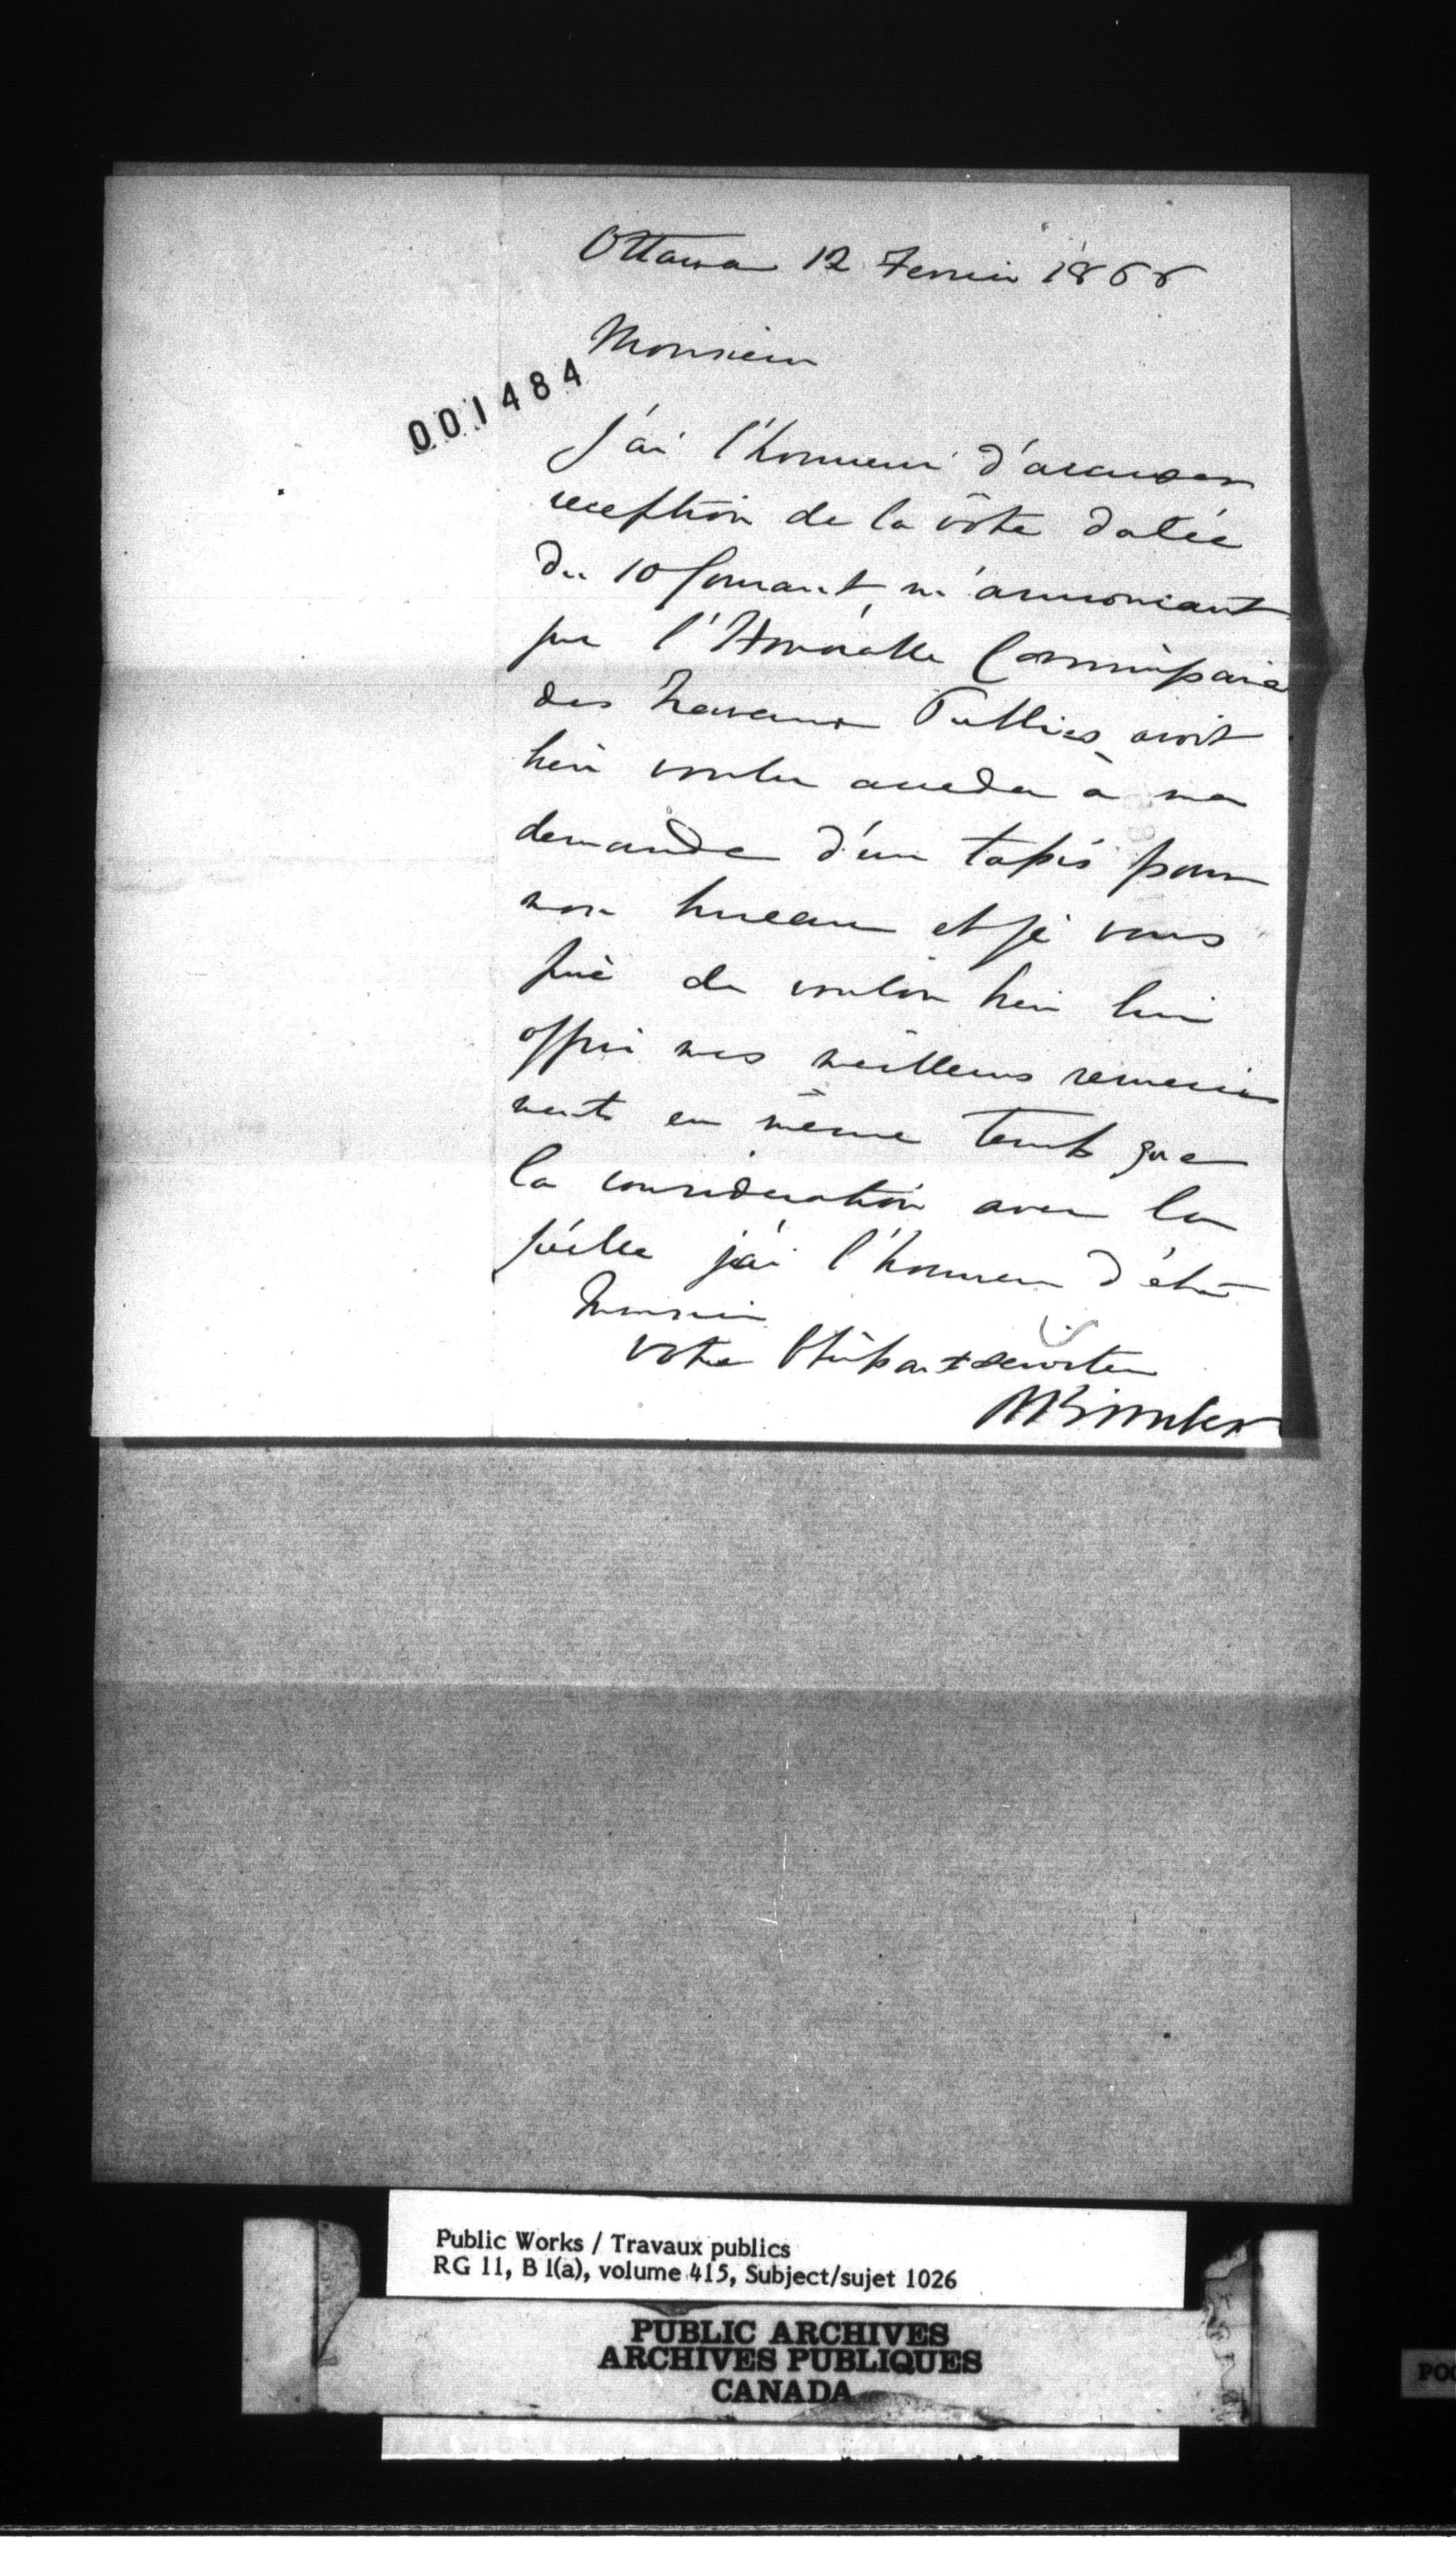 Ottawa 12 Fevrier 1866
Monsieur
001484
J'ai l'honneur d'accuser
reception de la vôtre datée
du 10 Courant, m'annoncant
que l'Honorable Commissaire
des Travaux Publics avoit
bien voulu acceder à ma
demande d'un tapis pour
mon bureau et je vous
prie de vouloir bien lui
offrir mes meilleurs remercie
ments en même temps que
la consideration avec la
quelle j'ai l'honneur d'être
Monsieur
Votre Obeissant serviteur
Public Works / Travaux publics
RG 11, B 1(a), volume 415, Subject/sujet 1026
PUBLIC ARCHIVES
ARCHIVES PUBLIQUES
CANADA